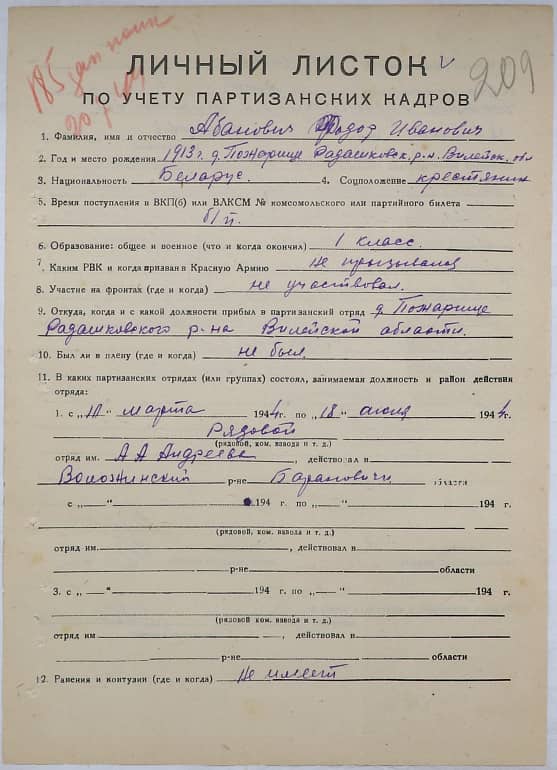 185
209
ЛИЧНЫЙ ЛИСТОК
ПО УЧЕТУ ПАРТИЗАНСКИХ КАДРОВ
1. Фамилия, имя и отчество Абанович Фодор Иванович
2. Год и место рождения 1913 г. д. Пожарище Радашковск. р-н. Вилейск. обл
3. Национальность Беларус. 4. Соцположение крестянин
5. Время поступления в ВКП(б) или ВЛКСМ № комсомольского или партийного билета
б/п.
6. Образование: общее и военное (что и когда окончил) 1 класс.
7. Каким РВК и когда призван в Красную Армию не прызывался
8. Участие на фронтах (где и когда) не участвовал.
9. Откуда, когда и с какой должности прибыл в партизанский отряд д. Пожарище
Радашковского р-на Вилейской области.
10. Был ли в плену (где и когда) не был.
11. В каких партизанских отрядах (или группах) состоял, занимаемая должность и район действия
отряда:
1. с „10“ марта 1944 г. по „18“ июля 1944 г.
Рядовой
(рядовой, ком. взвода и т. д.)
отряд им. А А Андреева, действовал в
Воложинский р-не Баранович. области
с „ “ 194 г. по „ “ 194 г.
(рядовой, ком. взвода и т. д.)
отряд им. , действовал в
р-не области
3. с „ “ 194 г. по „ “ 194 г.
(рядовой, ком. взвода и т. д.)
отряд им , действовал в
р-не области
12. Ранения и контузии (где и когда) Не имеет